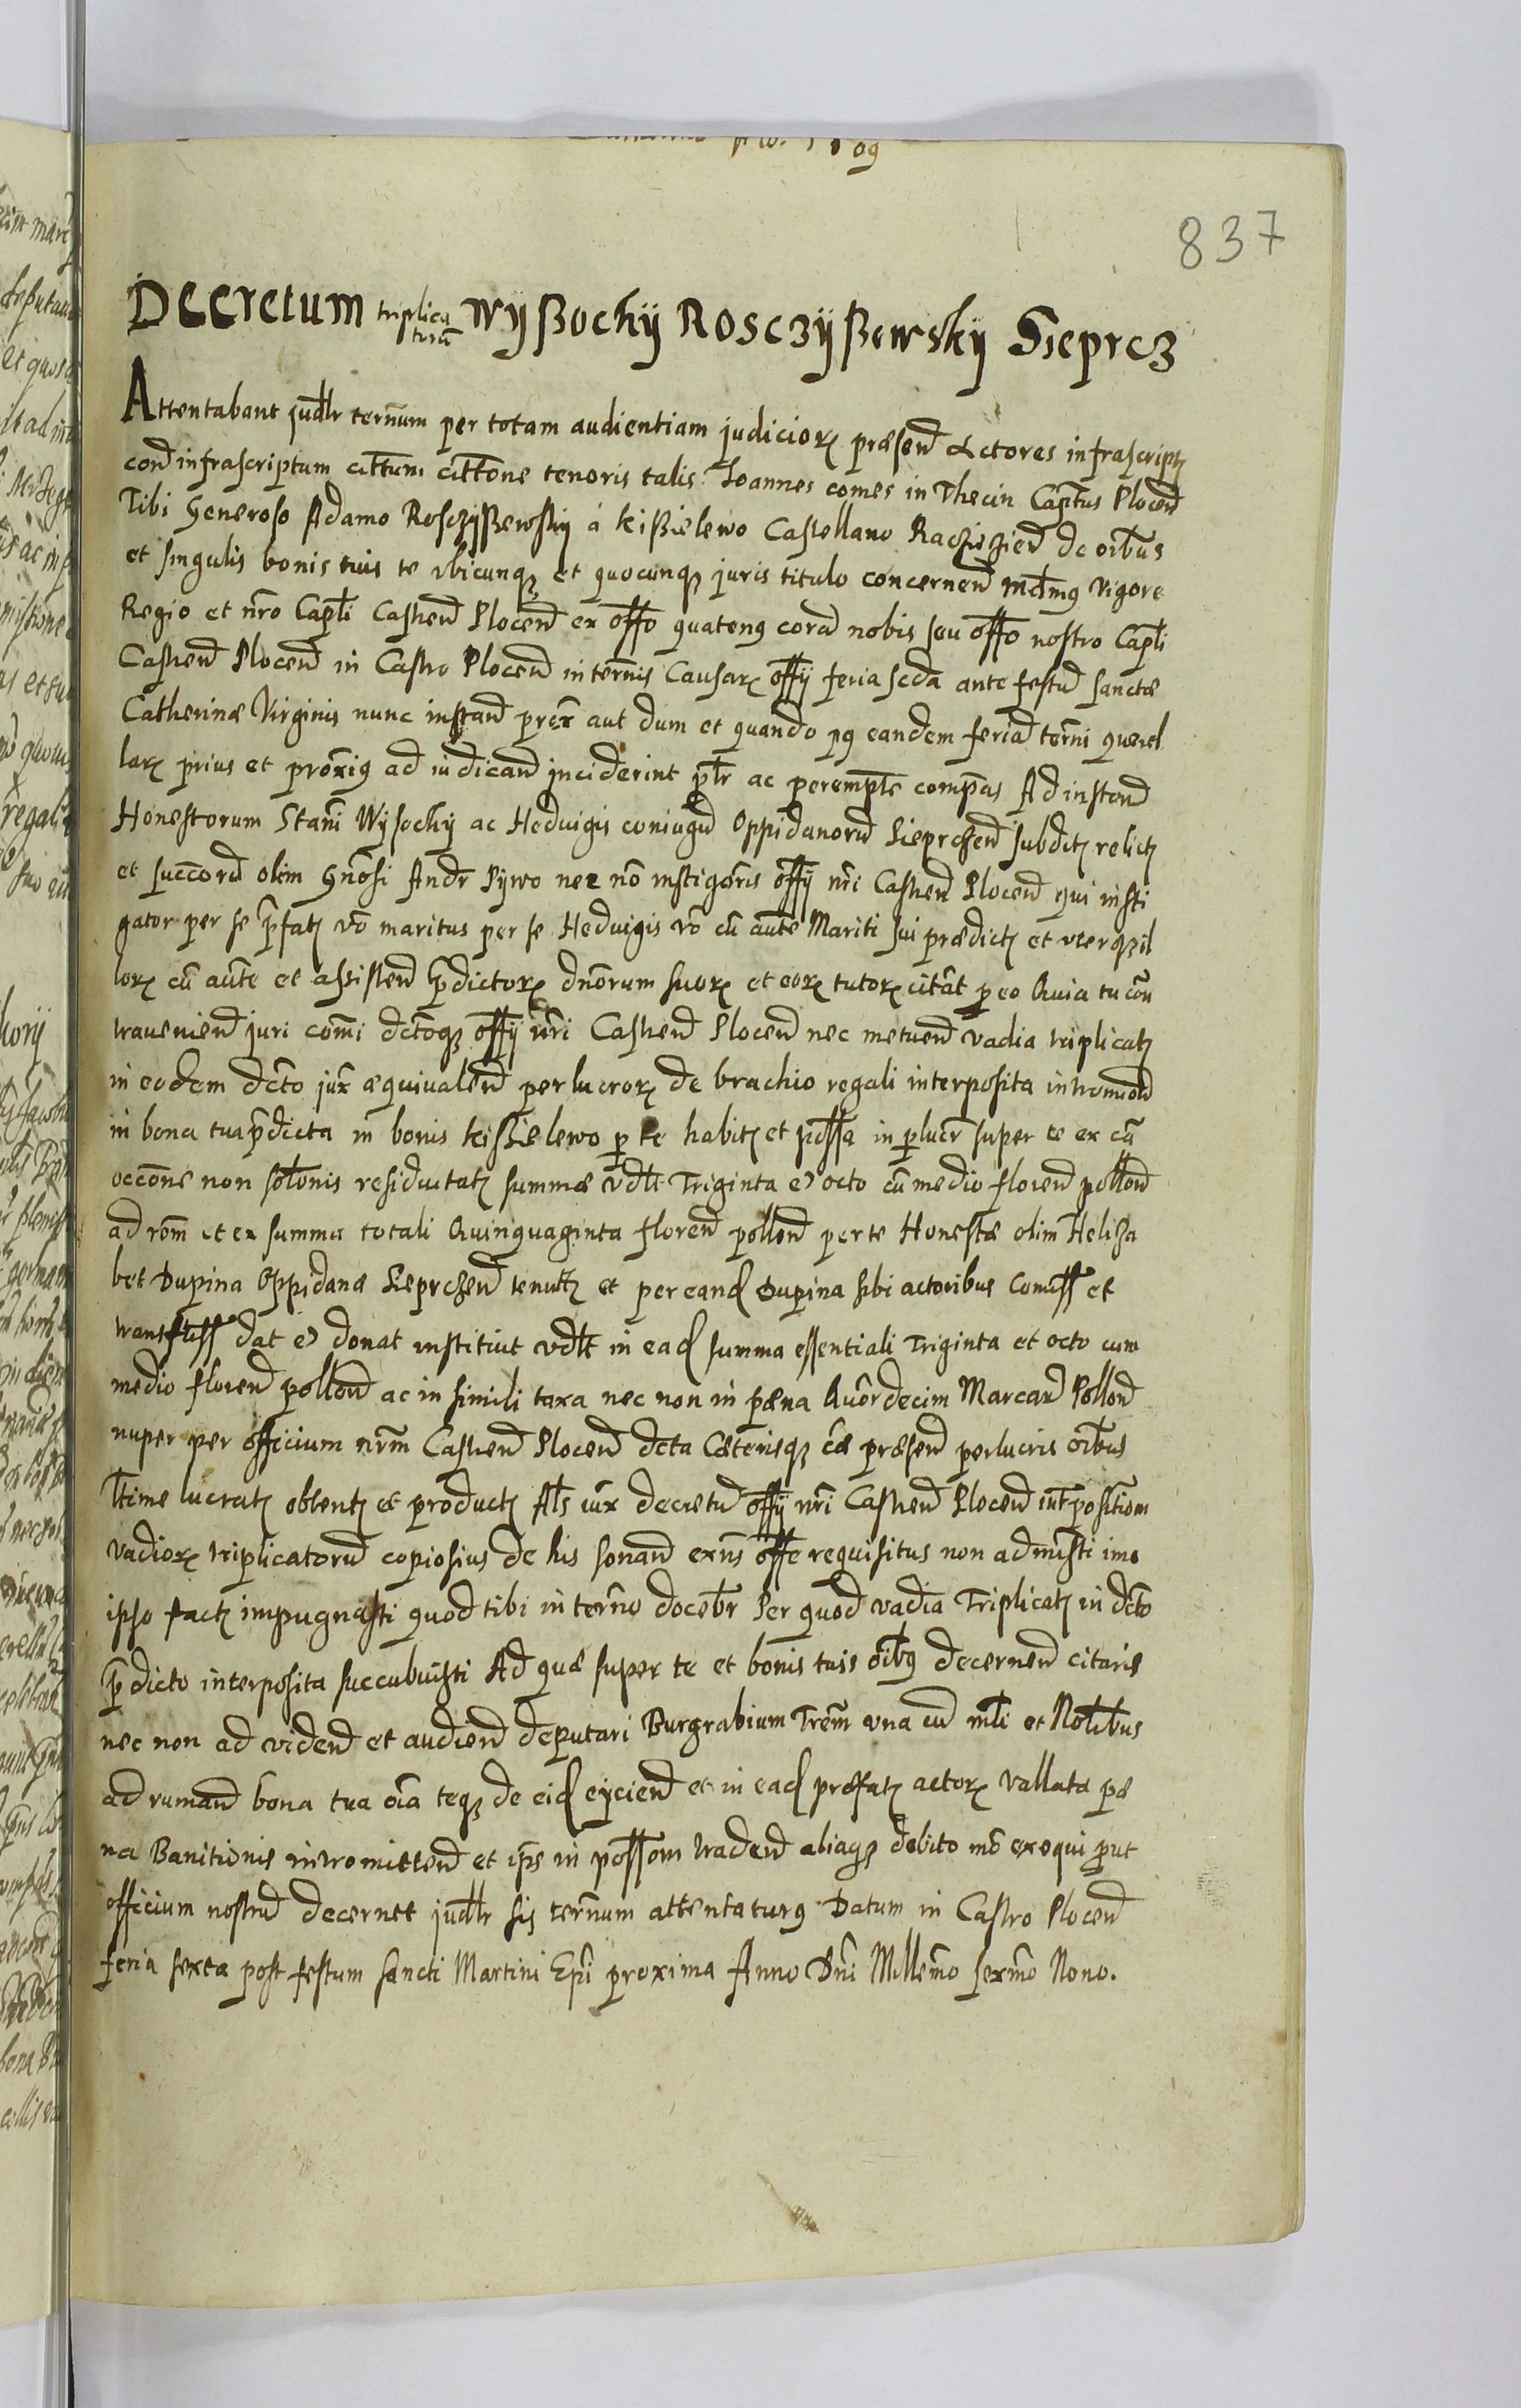 1609
837
Decretum triplica
torū Wyßochÿ Rosczÿßewskÿ Sieprcz
Attentabant jud͞lr term͞num per totam audientiam judicior̄ præsen̄ Actores infrascript̄
con̄ infrascriptum cit͞tum cit͞tone tenoris talis Joannes comes in Thecin Cap͞tus Plocen̄
Tibi Generoso Adamo Rosczÿßewskÿ á Kißielewo Castellano Raczizien̄ de oi͞bus
et singulis bonis tuis te vbicunqȝ et quocunqȝ juris titulo concernen̄ md͞mꝰ vigore
Regio et nr͞o Cap͞li Castren̄ Plocen̄ ex off͞o quatenꝰ corā nobis seu off͞o nostro Cap͞li
Castren̄ Plocen̄ in Castro Plocen̄ in term͞nis Causar̄ off͞y feria scd͞a ante festū sanctæ
Catherinæ Virginis nunc instan̄ prox͞ aut dum et quando pꝰ eandem feriā term͞ni querel
lar̄ prius et proxi͞ꝰ ad iudican̄ inciderint pl͞r ac peremp͞te comp͞as Ad instan̄
Honestorum Stani͞ Wÿsochÿ ac Heduigis coniugū Oppidanorū Sieprczen̄ subdit̄ relict̄
et succ͞orū olim Gn͞osi Andr͞ Pÿwo nec no͞ instigo͞ris off͞y nr͞i Castren̄ Plocen̄ qui insti
gator per se p͞fat̄ vo͞ maritus per se Heduigis vo͞ cū aut͞e Mariti sui prædict̄ et vterqȝ il
lor̄ cū aut͞e et assisten̄ p͞dictor̄ dn͞orum suor̄ et eor̄ tutor̄ citāt p eo Quia tu con
trauenien̄ juri com͞i dct͞oqȝ off͞y nr͞i Castren̄ Plocen̄ nec metuen̄ vadia triplicat̄
in eodem dct͞o jux͞ æquiualen̄ perlucror̄ de brachio regali interposita intromon̄
in bona tua p͞dicta in bonis Kißielewo p te habit̄ et poss͞a in pluc͞r super te ex cā
occ͞one non sol͞onis residuitat̄ summæ vd͞lt Triginta et octo cū medio floren̄ pollon̄
ad ro͞m et ex summa totali Quinquaginta floren̄ pollon̄ per te Honestæ olim Heliza
bet Dupina Oppidanæ Sieprczen̄ tenut̄ et per eand̄ Dupina sibi actoribus comiss͞ et
transfuss͞ dat et donat institiut vd͞lt in ead̄ summa essentiali Triginta et octo cum
medio floren̄ pollon̄ ac in simili taxa nec non in pæna Quo͞rdecim Marcar̄ Pollon̄
nuper per officium nr͞m Castren̄ Plocen̄ dct͞a Cæterisqȝ cæ præsen̄ perlucris oi͞bus
l͞time lucrat̄ obtent̄ et product̄ Al͞s iux͞ decretū off͞y nr͞i Castren̄ Plocen̄ int͞positi͞om
vadior̄ triplicatorū copiosius de his sonan̄ exn͞s off͞e requisitus non admisti imo
ipso fact̄ impugnasti quod tibi in term͞no doceb͞r Per quod vadia Triplicat̄ in dct͞o
p͞dicto interposita succubuisti Ad quæ super te et bonis tuis oi͞bꝰ decernen̄ citaris
nec non ad viden̄ et audien̄ deputari Burgrabium Tre͞m vna cū ml͞i et Nol͞ibus
ad ruman̄ bona tua oi͞a teqȝ de eid̄ eycien̄ et in ead̄ præfat̄ actor̄ vallata pæ
na Banitionis intromitten̄ et ip͞s in poss͞om traden̄ aliaqȝ debito mo͞ exequi put
officium nostrū decernet jud͞lr sis term͞num attentaturꝰ Datum in Castro Plocen̄
feria sexta post festum sancti Martini Ep͞i proxima Anno Dn͞i Millem͞o sexm͞o Nono.